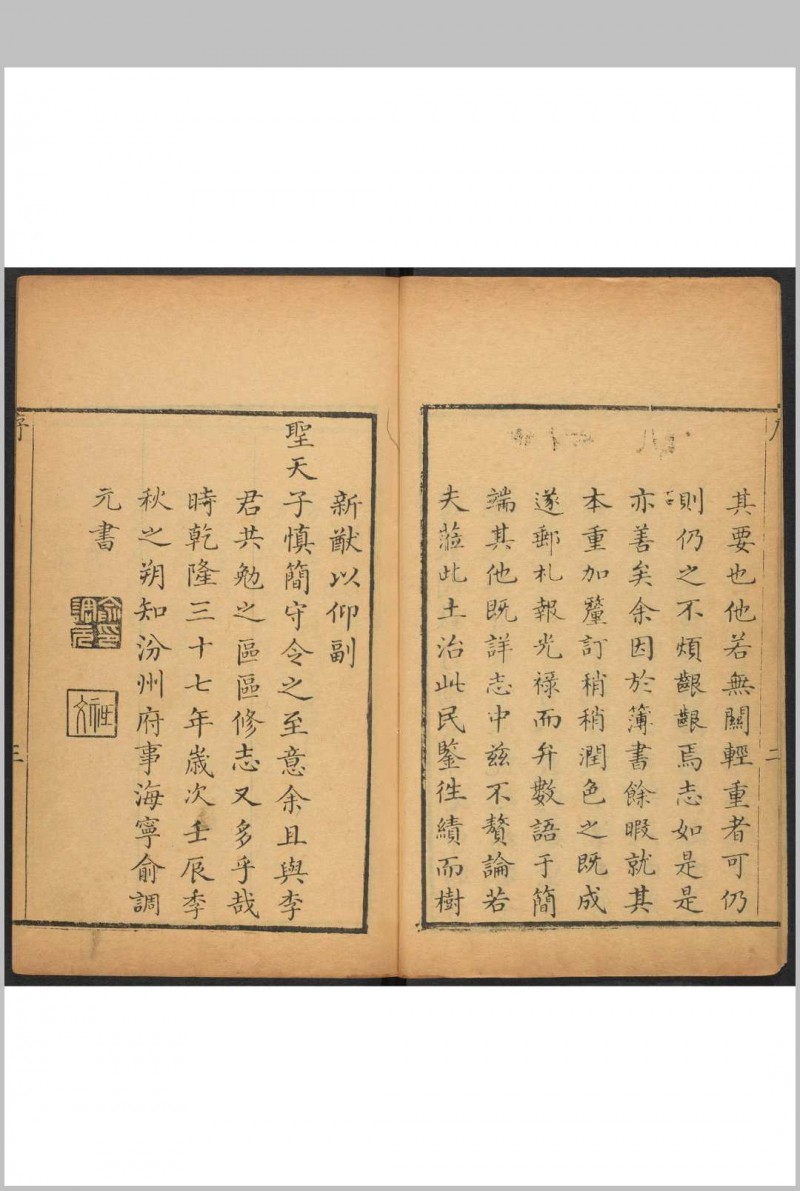 其要也他若無關輕重者可仍
則仍之不煩齦齦焉志如是是
亦善矣余因於簿書餘暇就其
本重加釐訂稍稍潤色之既成
遂郵札報光祿而弁數語于簡
端其他既詳志中茲不贅論若
夫蒞此土治此民鑒往績而樹
二
新猷以仰副
聖天子慎簡守令之至意余且與李
君共勉之區區修志又多乎哉
時乾隆三十七年歲次壬辰季
秋之朔知汾州府事海寧俞調
元書
俞調元印
序
三